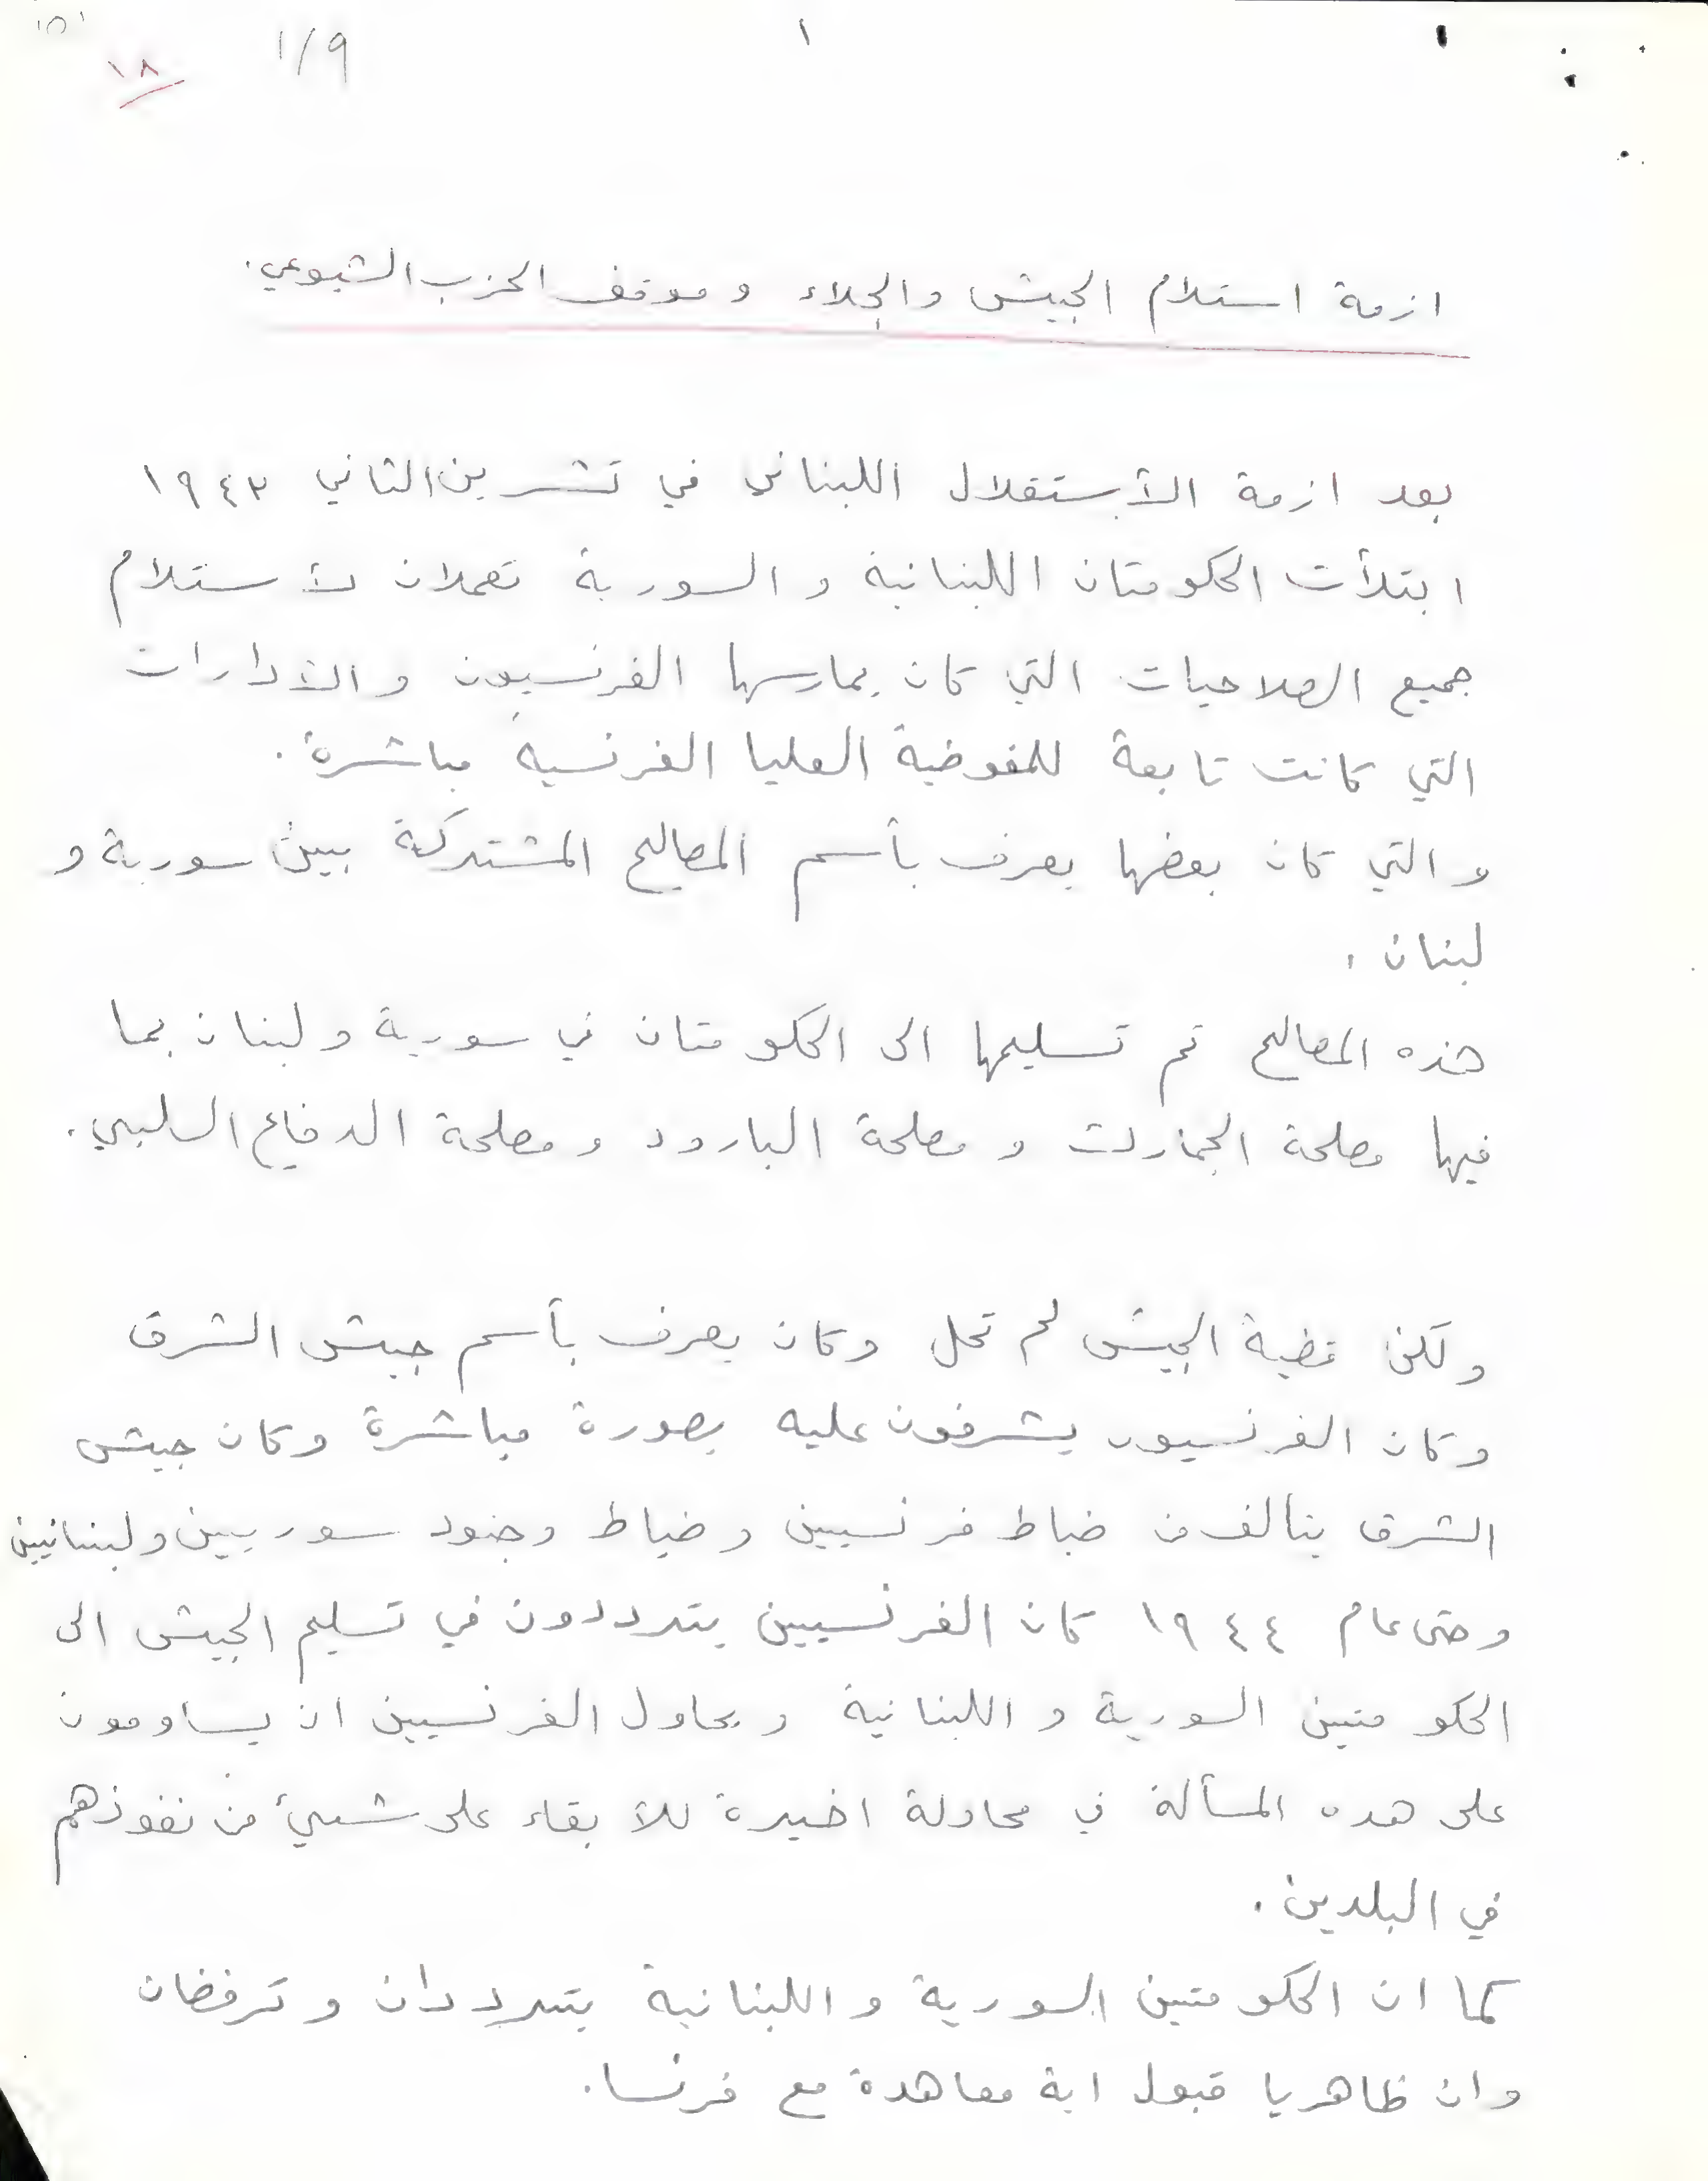 ١
١/٩
١٨
١٥١
ازمة استلام الجيش والجلاء وموقف الحزب الشيوعي.
بعد ازمة الأستقلال اللبناني في تشرين الثاني ١٩٤٣
ابتدأت الحكومتان اللبنانية والسورية تعملان لأستلام
جميع الصلاحيات التي كان يمارسها الفرنسيون والأدارات
التي كانت تابعة للمفوضية العليا الفرنسية مباشرة.
والتي كان بعضها يعرف بأسم المصالح المشتركة بين سورية و
لبنان.
هذه المصالح تم تسليمها الى الحكومتان في سورية ولبنان بما
فيها مصلحة الجمارك ومصلحة البارود ومصلحة الدفاع السلبي.
ولكن قضية الجيش لم تحل وكان يعرف بأسم جيش الشرق
وكان الفرنسيون يشرفون عليه بصورة مباشرة وكان جيش
الشرق يتألف من ضباط فرنسيين وضباط وجنود سوريين ولبنانيين
وحتى عام ١٩٤٤ كان الفرنسيين يترددون في تسليم الجيش الى
الحكومتين السورية واللبنانية ويحاول الفرنسيين ان يساومون
على هذه المسألة في محاولة اخيرة للأبقاء على شيئ من نفوذهم
في البلدين.
كما ان الحكومتين السورية واللبنانية يترددان وترفضان
وان ظاهريا قبول اية معاهدة مع فرنسا.